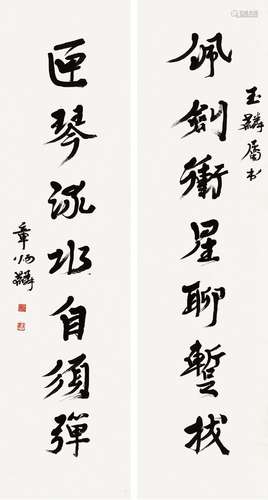 玉麟屬書
佩劍衝星聊蹔拔
匣琴流水自須彈
章炳麟